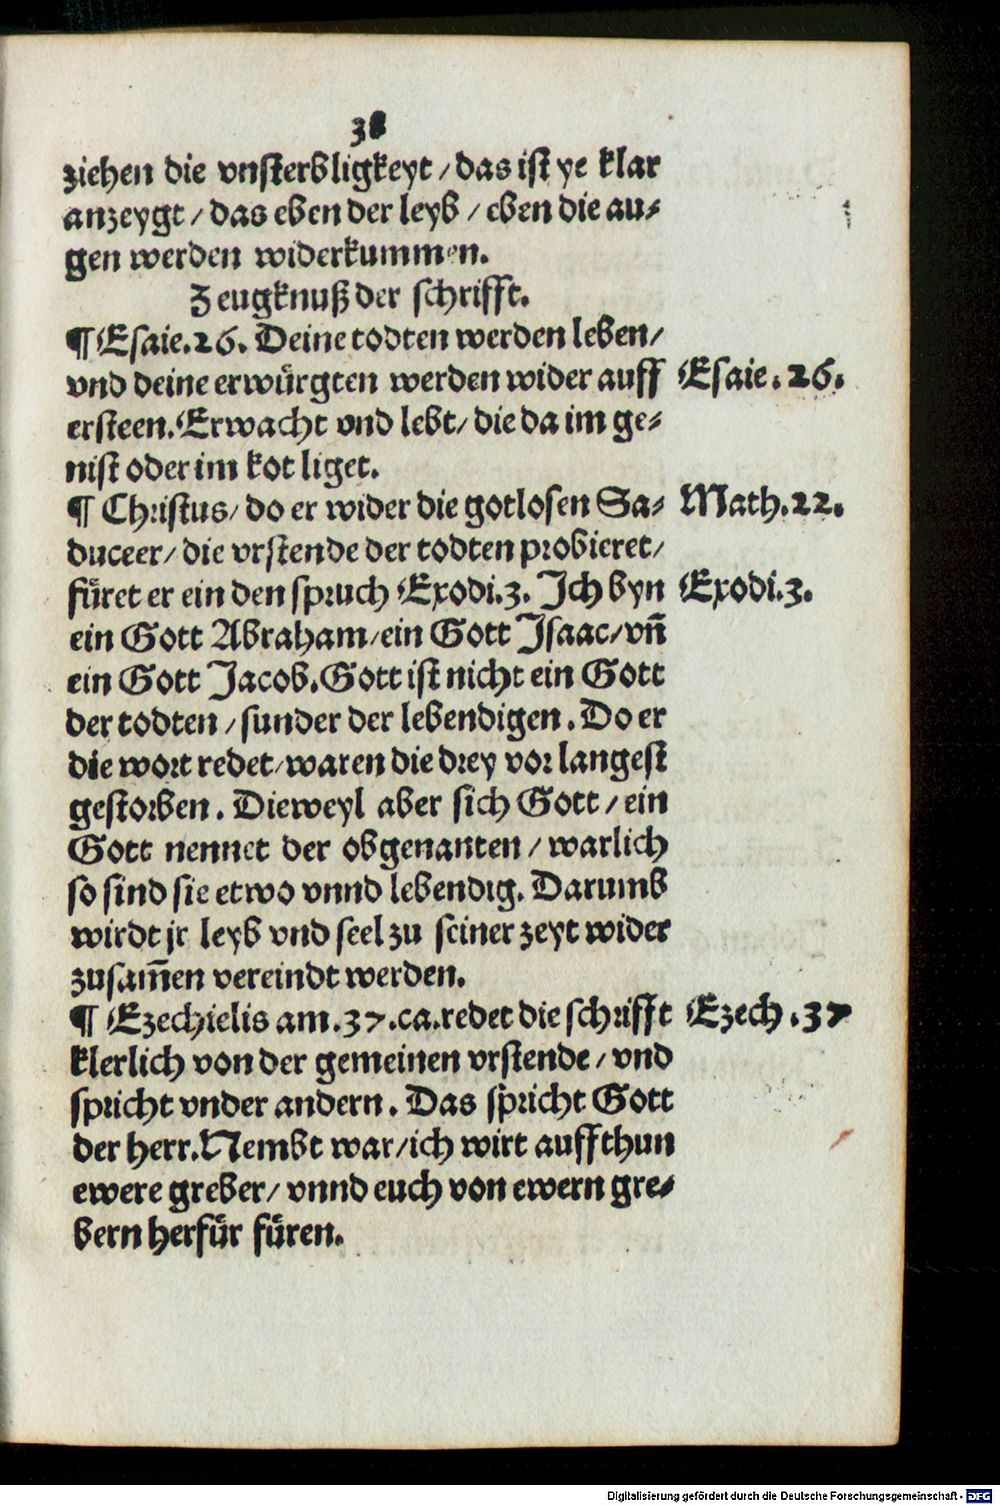 38
ziehen die vnsterbligkeyt / das ist ye klar
anzeygt / das eben der leyb / eben die au⸗
gen werden widerkummen.
Zeugknuß der schrifft.
¶ Esaie.26. Deine todten werden leben/
vnd deine erwürgten werden wider auff
Esaie. 26.
ersteen. Erwacht vnd lebt/ die da im ge⸗
nist oder im kot liget.
¶ Christus/ do er wider die gotlosen Sa⸗
Math.22.
duceer/ die vrstende der todten probieret/
füret er ein den spruch Exodi.3. Ich byn
Exodi.3.
ein Gott Abraham/ein Gott Isaac/vñ
ein Gott Jacob. Gott ist nicht ein Gott
der todten / sunder der lebendigen. Do er
die wort redet/waren die drey vor langest
gestorben. Dieweyl aber sich Gott / ein
Gott nennet der obgenanten / warlich
so sind sie etwo vnnd lebendig. Darumb
wirdt jr leyb vnd seel zu seiner zeyt wider
zusam̃en vereindt werden.
¶ Ezechielis am.37.ca.redet die schrifft
Ezech.37
klerlich von der gemeinen vrstende / vnd
spricht vnder andern. Das spricht Gott
der herr. Nembt war/ich wirt auffthun
ewere greber/ vnnd euch von ewern gre⸗
bern herfür füren.
Digitalisierung gefördert durch die Deutsche Forschungsgemeinschaft - DFG